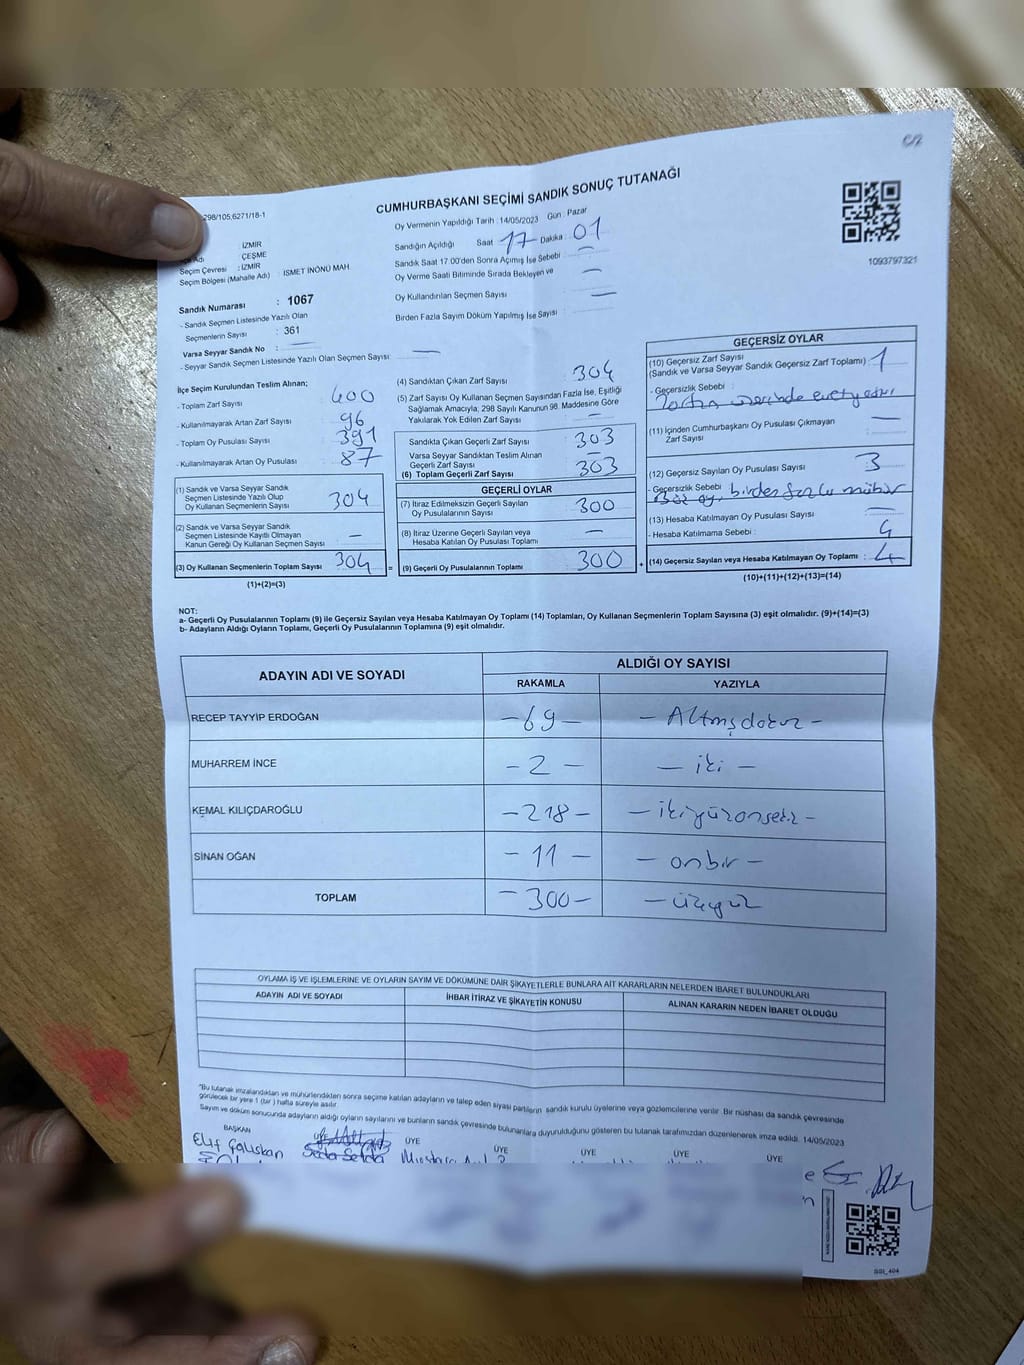 C/2
298/105,6271/18-1
CUMHURBAŞKANI SEÇİMİ SANDIK SONUÇ TUTANAĞI
Oy Vermenin Yapıldığı Tarih : 14/05/2023 Gün : Pazar
Sandığın Açıldığı Saat 17 Dakika : 01
Sandık Saat 17.00'den Sonra Açımış İse Sebebi : —
Oy Verme Saati Bitiminde Sırada Bekleyen ve —
Oy Kullandırılan Seçmen Sayısı : —
Birden Fazla Sayım Döküm Yapılmış İse Sayısı :
1093797321
İZMİR
Adı ÇEŞME
Seçim Çevresi : İZMİR
Seçim Bölgesi (Mahalle Adı) : İSMET İNÖNÜ MAH
Sandık Numarası : 1067
- Sandık Seçmen Listesinde Yazılı Olan
Seçmenlerin Sayısı : 361
Varsa Seyyar Sandık No : —
- Seyyar Sandık Seçmen Listesinde Yazılı Olan Seçmen Sayısı: —
İlçe Seçim Kurulundan Teslim Alınan;
- Toplam Zarf Sayısı : 400
- Kullanılmayarak Artan Zarf Sayısı : 96
- Toplam Oy Pusulası Sayısı : 391
- Kullanılmayarak Artan Oy Pusulası : 87
(1) Sandık ve Varsa Seyyar Sandık
Seçmen Listesinde Yazılı Olup
Oy Kullanan Seçmenlerin Sayısı : 304
(2) Sandık ve Varsa Seyyar Sandık
Seçmen Listesinde Kayıtlı Olmayan
Kanun Gereği Oy Kullanan Seçmen Sayısı : —
(3) Oy Kullanan Seçmenlerin Toplam Sayısı : 304 =
(1)+(2)=(3)
(4) Sandıktan Çıkan Zarf Sayısı : 304
(5) Zarf Sayısı Oy Kullanan Seçmen Sayısından Fazla İse, Eşitliği
Sağlamak Amacıyla; 298 Sayılı Kanunun 98. Maddesine Göre
Yakılarak Yok Edilen Zarf Sayısı : —
Sandıkta Çıkan Geçerli Zarf Sayısı : 303
Varsa Seyyar Sandıktan Teslim Alınan
Geçerli Zarf Sayısı : —
(6) Toplam Geçerli Zarf Sayısı : 303
GEÇERLİ OYLAR
(7) İtiraz Edilmeksizin Geçerli Sayılan
Oy Pusulalarının Sayısı : 300
(8) İtiraz Üzerine Geçerli Sayılan veya
Hesaba Katılan Oy Pusulası Toplamı : —
(9) Geçerli Oy Pusulalarının Toplamı : 300 +
GEÇERSİZ OYLAR
(10) Geçersiz Zarf Sayısı
(Sandık ve Varsa Seyyar Sandık Geçersiz Zarf Toplamı) : 1
- Geçersizlik Sebebi :
üzerinde
(11) İçinden Cumhurbaşkanı Oy Pusulası Çıkmayan
Zarf Sayısı : —
(12) Geçersiz Sayılan Oy Pusulası Sayısı : 3
- Geçersizlik Sebebi :
oy, birden fazla mühür
(13) Hesaba Katılmayan Oy Pusulası Sayısı : —
- Hesaba Katılmama Sebebi : 4
(14) Geçersiz Sayılan veya Hesaba Katılmayan Oy Toplamı : 4
(10)+(11)+(12)+(13)=(14)
NOT:
a- Geçerli Oy Pusulalarının Toplamı (9) ile Geçersiz Sayılan veya Hesaba Katılmayan Oy Toplamı (14) Toplamları, Oy Kullanan Seçmenlerin Toplam Sayısına (3) eşit olmalıdır. (9)+(14)=(3)
b- Adayların Aldığı Oyların Toplamı, Geçerli Oy Pusulalarının Toplamına (9) eşit olmalıdır.
ADAYIN ADI VE SOYADI ALDIĞI OY SAYISI
RAKAMLA YAZIYLA
RECEP TAYYİP ERDOĞAN -69- - Altmışdokuz -
MUHARREM İNCE -2- - iki -
KEMAL KILIÇDAROĞLU -218- - ikiyüzonsekiz -
SİNAN OĞAN -11- - onbir -
TOPLAM -300- - üçyüz
OYLAMA İŞ VE İŞLEMLERİNE VE OYLARIN SAYIM VE DÖKÜMÜNE DAİR ŞİKAYETLERLE BUNLARA AİT KARARLARIN NELERDEN İBARET BULUNDUKLARI
ADAYIN ADI VE SOYADI İHBAR İTİRAZ VE ŞİKAYETİN KONUSU ALINAN KARARIN NEDEN İBARET OLDUĞU
"Bu tutanak imzalandıktan ve mühürlendikten sonra seçime katılan adayların ve talep eden siyasi partilerin sandık kurulu üyelerine veya gözlemcilerine verilir. Bir nüshası da sandık çevresinde
görülecek bir yere 1 (bir) hafta süreyle asılır.
Sayım ve döküm sonucunda adayların aldığı oyların sayılarını ve bunların sandık çevresinde bulunanlara duyurulduğunu gösteren bu tutanak tarafımızdan düzenlenerek imza edildi. 14/05/2023
BAŞKAN ÜYE ÜYE ÜYE ÜYE ÜYE ÜYE
Elif Çalışkan
SSI_404